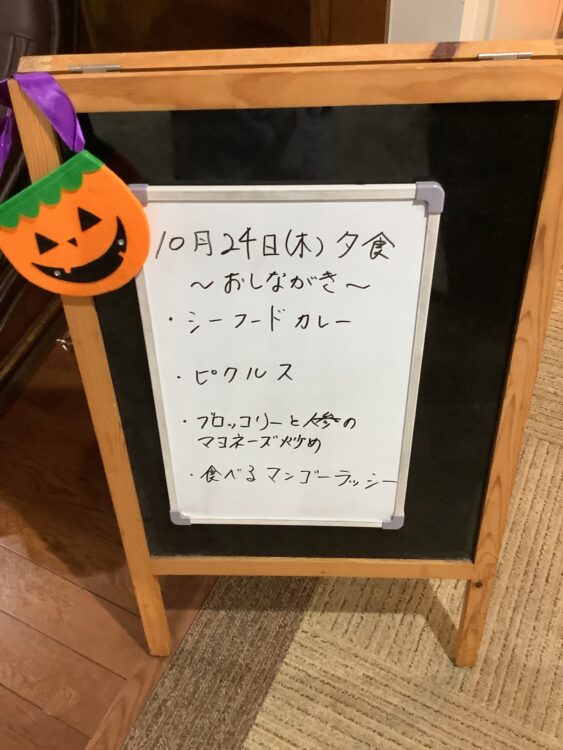 10月24日(木)夕食
～おしながき～
・シーフードカレー
・ピクルス
・ブロッコリーと人参の
マヨネーズ炒め
・食べるマンゴーラッシー